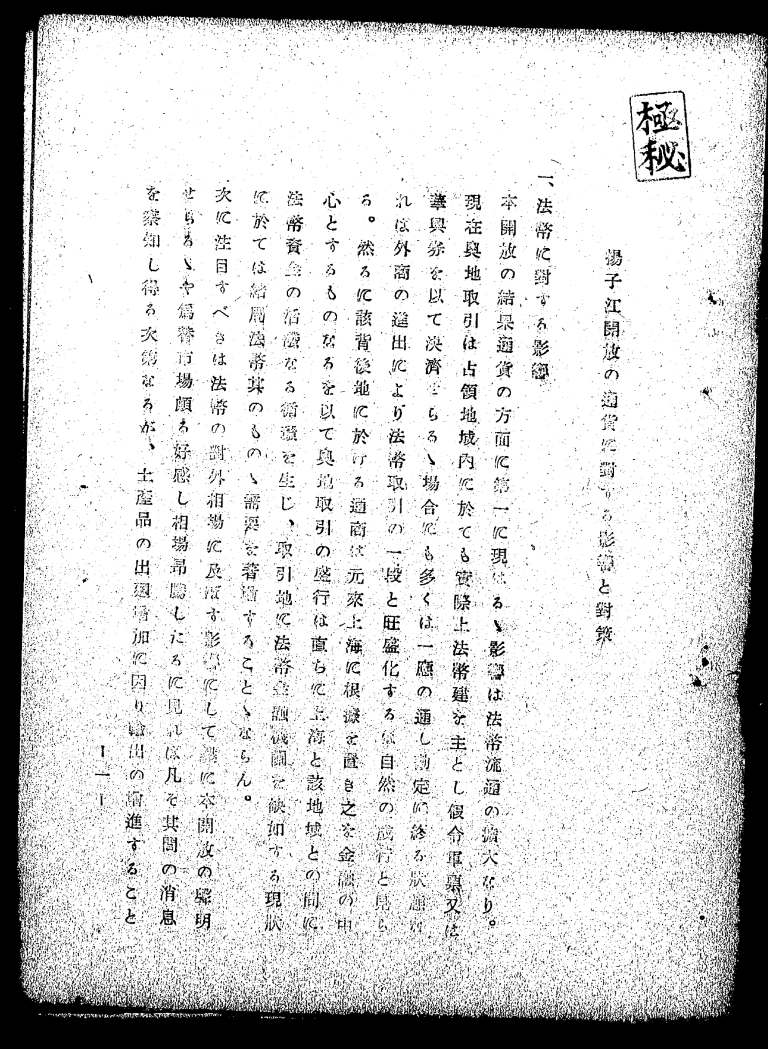 極秘
揚子江開放の通貨に對する影響と對策
一、法幣に對する影響
本開放の結果通貨の方面に第一に現はるゝ影響は法幣流通の擴大なり。
現在奥地取引は占領地域内に於ても實際上法幣建を主とし假令軍票又は
華興券を以て決濟せらるゝ場合にも多くは一應の通し勘定に終る狀態な
れば外商の進出により法幣取引の一段と旺盛化するは自然の成行と見ら
る。然るに該背後地に於ける通商は元來上海に根據を置き之を金融の中
心とするものなるを以て奥地取引の盛行は直ちに上海と該地域との間に
法幣資金の活潑なる循環を生じ、取引地に法幣金融機關を缺如する現狀
に於ては結局法幣其のものゝ需要を著增することゝならん。
次に注目すべきは法幣の對外相場に及ぼす影響にして既に本開放の聲明
せらるゝや爲替市場頗る好感し相場昂騰したるに見れば凡そ其間の消息
を察知し得る次第なるが、土產品の出廻增加に因り輸出の增進すること
―一―